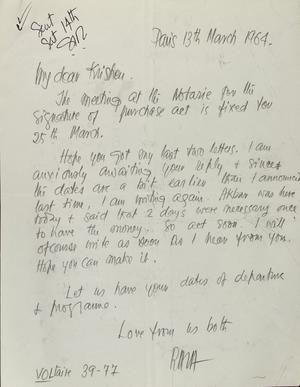 Sent
Sat 14th
Paris 13th March 1964.
My dear Krishen.
The meeting at the Notaire for the
signature of purchase act is fixed for
25th March.
Hope you got my last two letters. I am
anxiously awaiting your reply & since
the dates are a bit earlier than I announced
last time, I am writing again. Akbar was here
today & said that 2 days were necessary once
to have the money. So act soon. I will
ofcourse write as soon as I hear from you.
Hope you can make it.
Let us have your dates of departure
& programme.
Love from us both
RAZA
VOLTAIRE 39-77